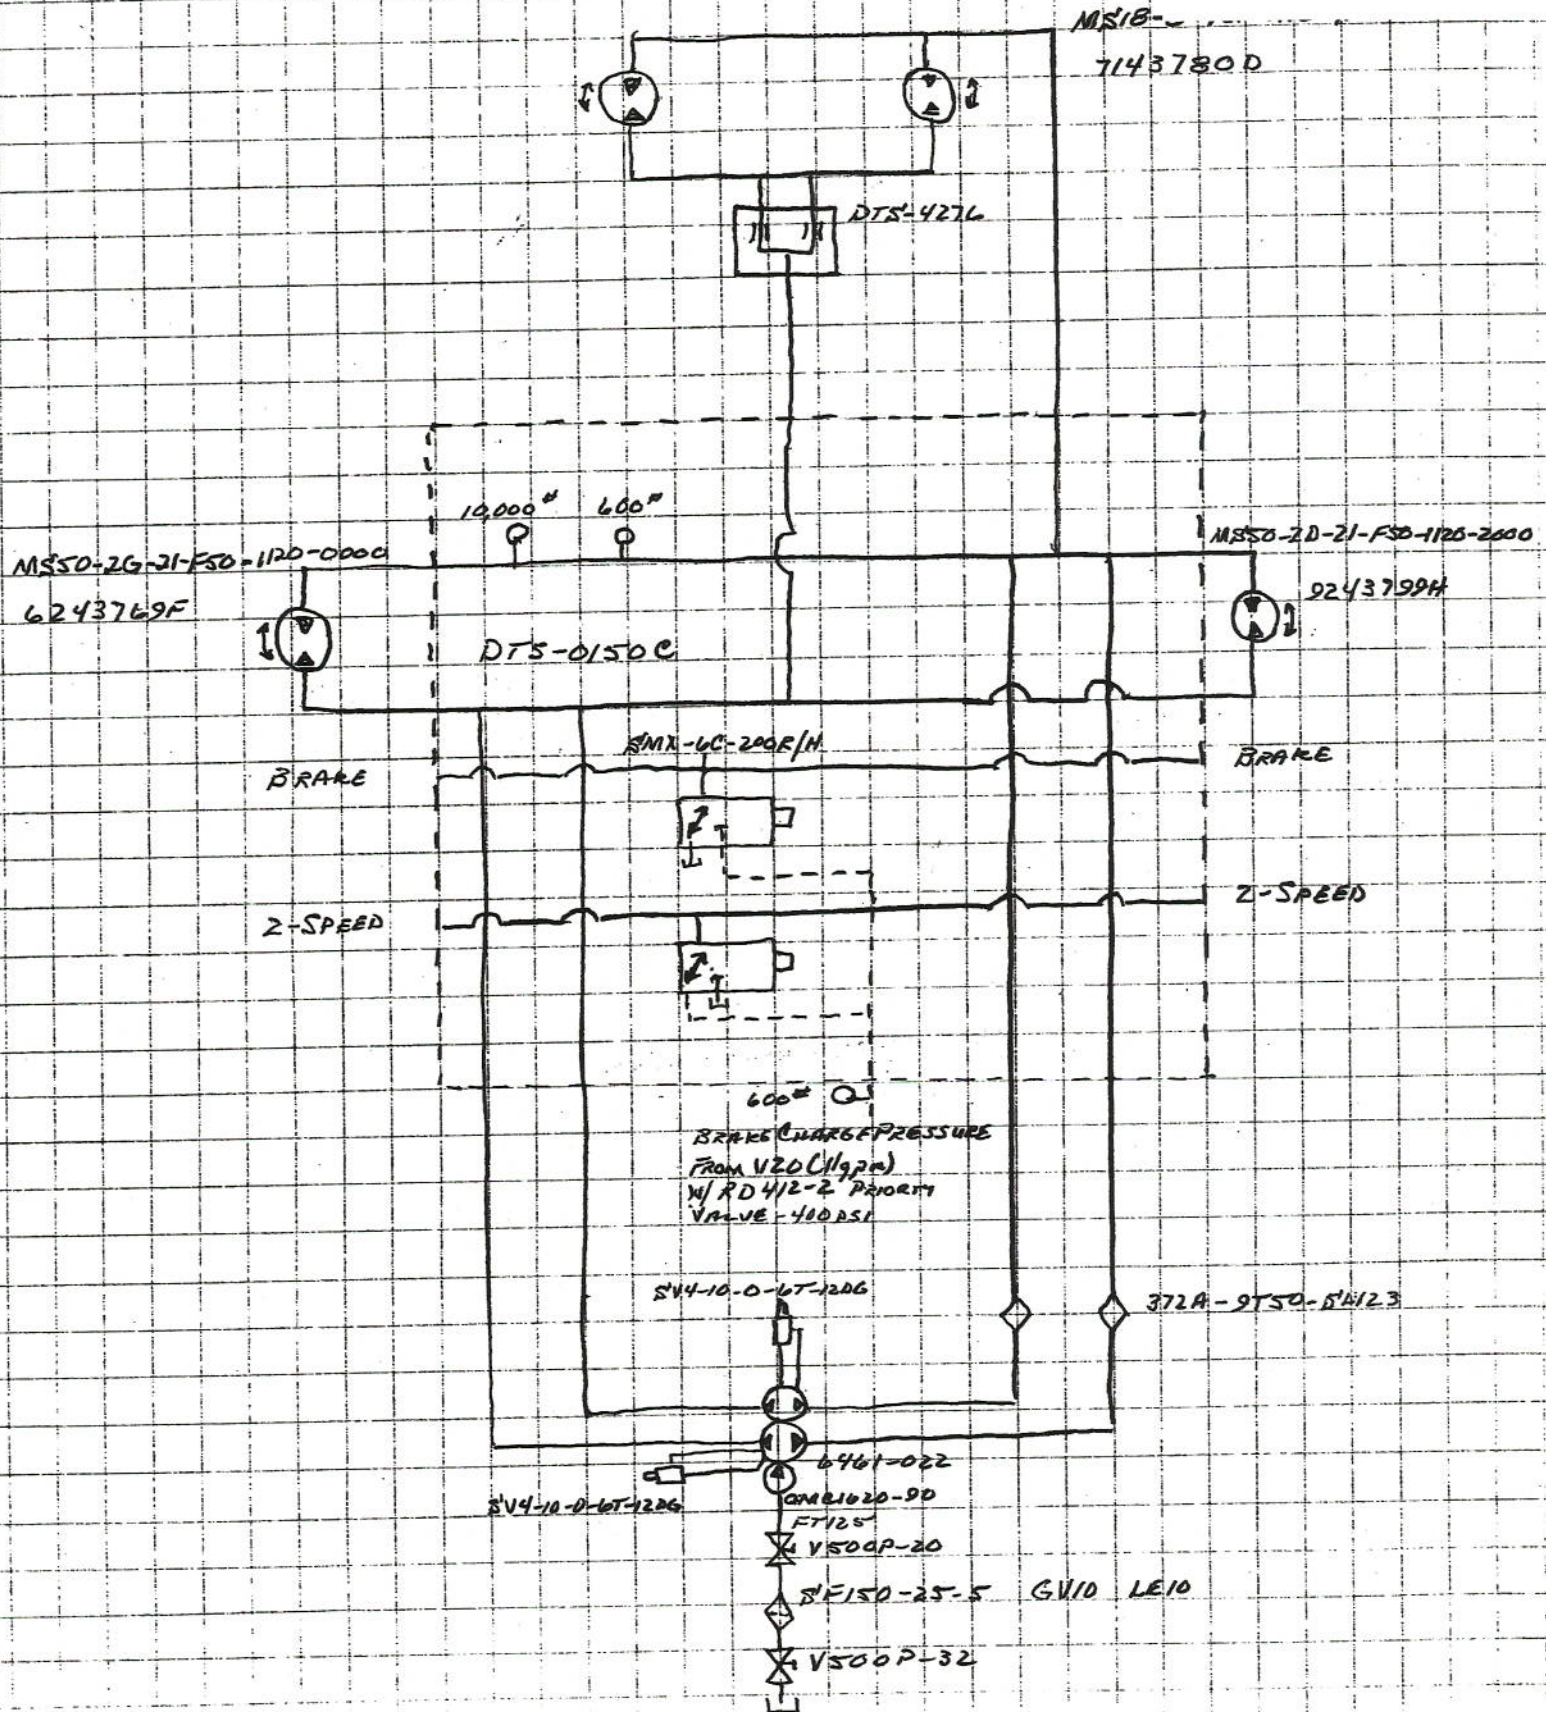 MS18-
7143780D
DTS-4276
10,000#
600#
MS50-2G-21-F50-1120-0000
6243769F
MS50-2D-21-F50-1120-2000
9243799H
DTS-0150C
SMX-6C-200R/H
BRAKE
BRAKE
2-SPEED
2-SPEED
600#
BRAKE CHARGE PRESSURE
FROM V20 (11gpm)
W/ RD412-2 PRIORTY
VALVE - 400 PSI
SV4-10-0-6T-12DG
372A-9T50-
6461-022
SV4-10-0-6T-12DG
1620-90
FT125
V500P-20
SF150-25-5 GV10 LE10
V500P-32